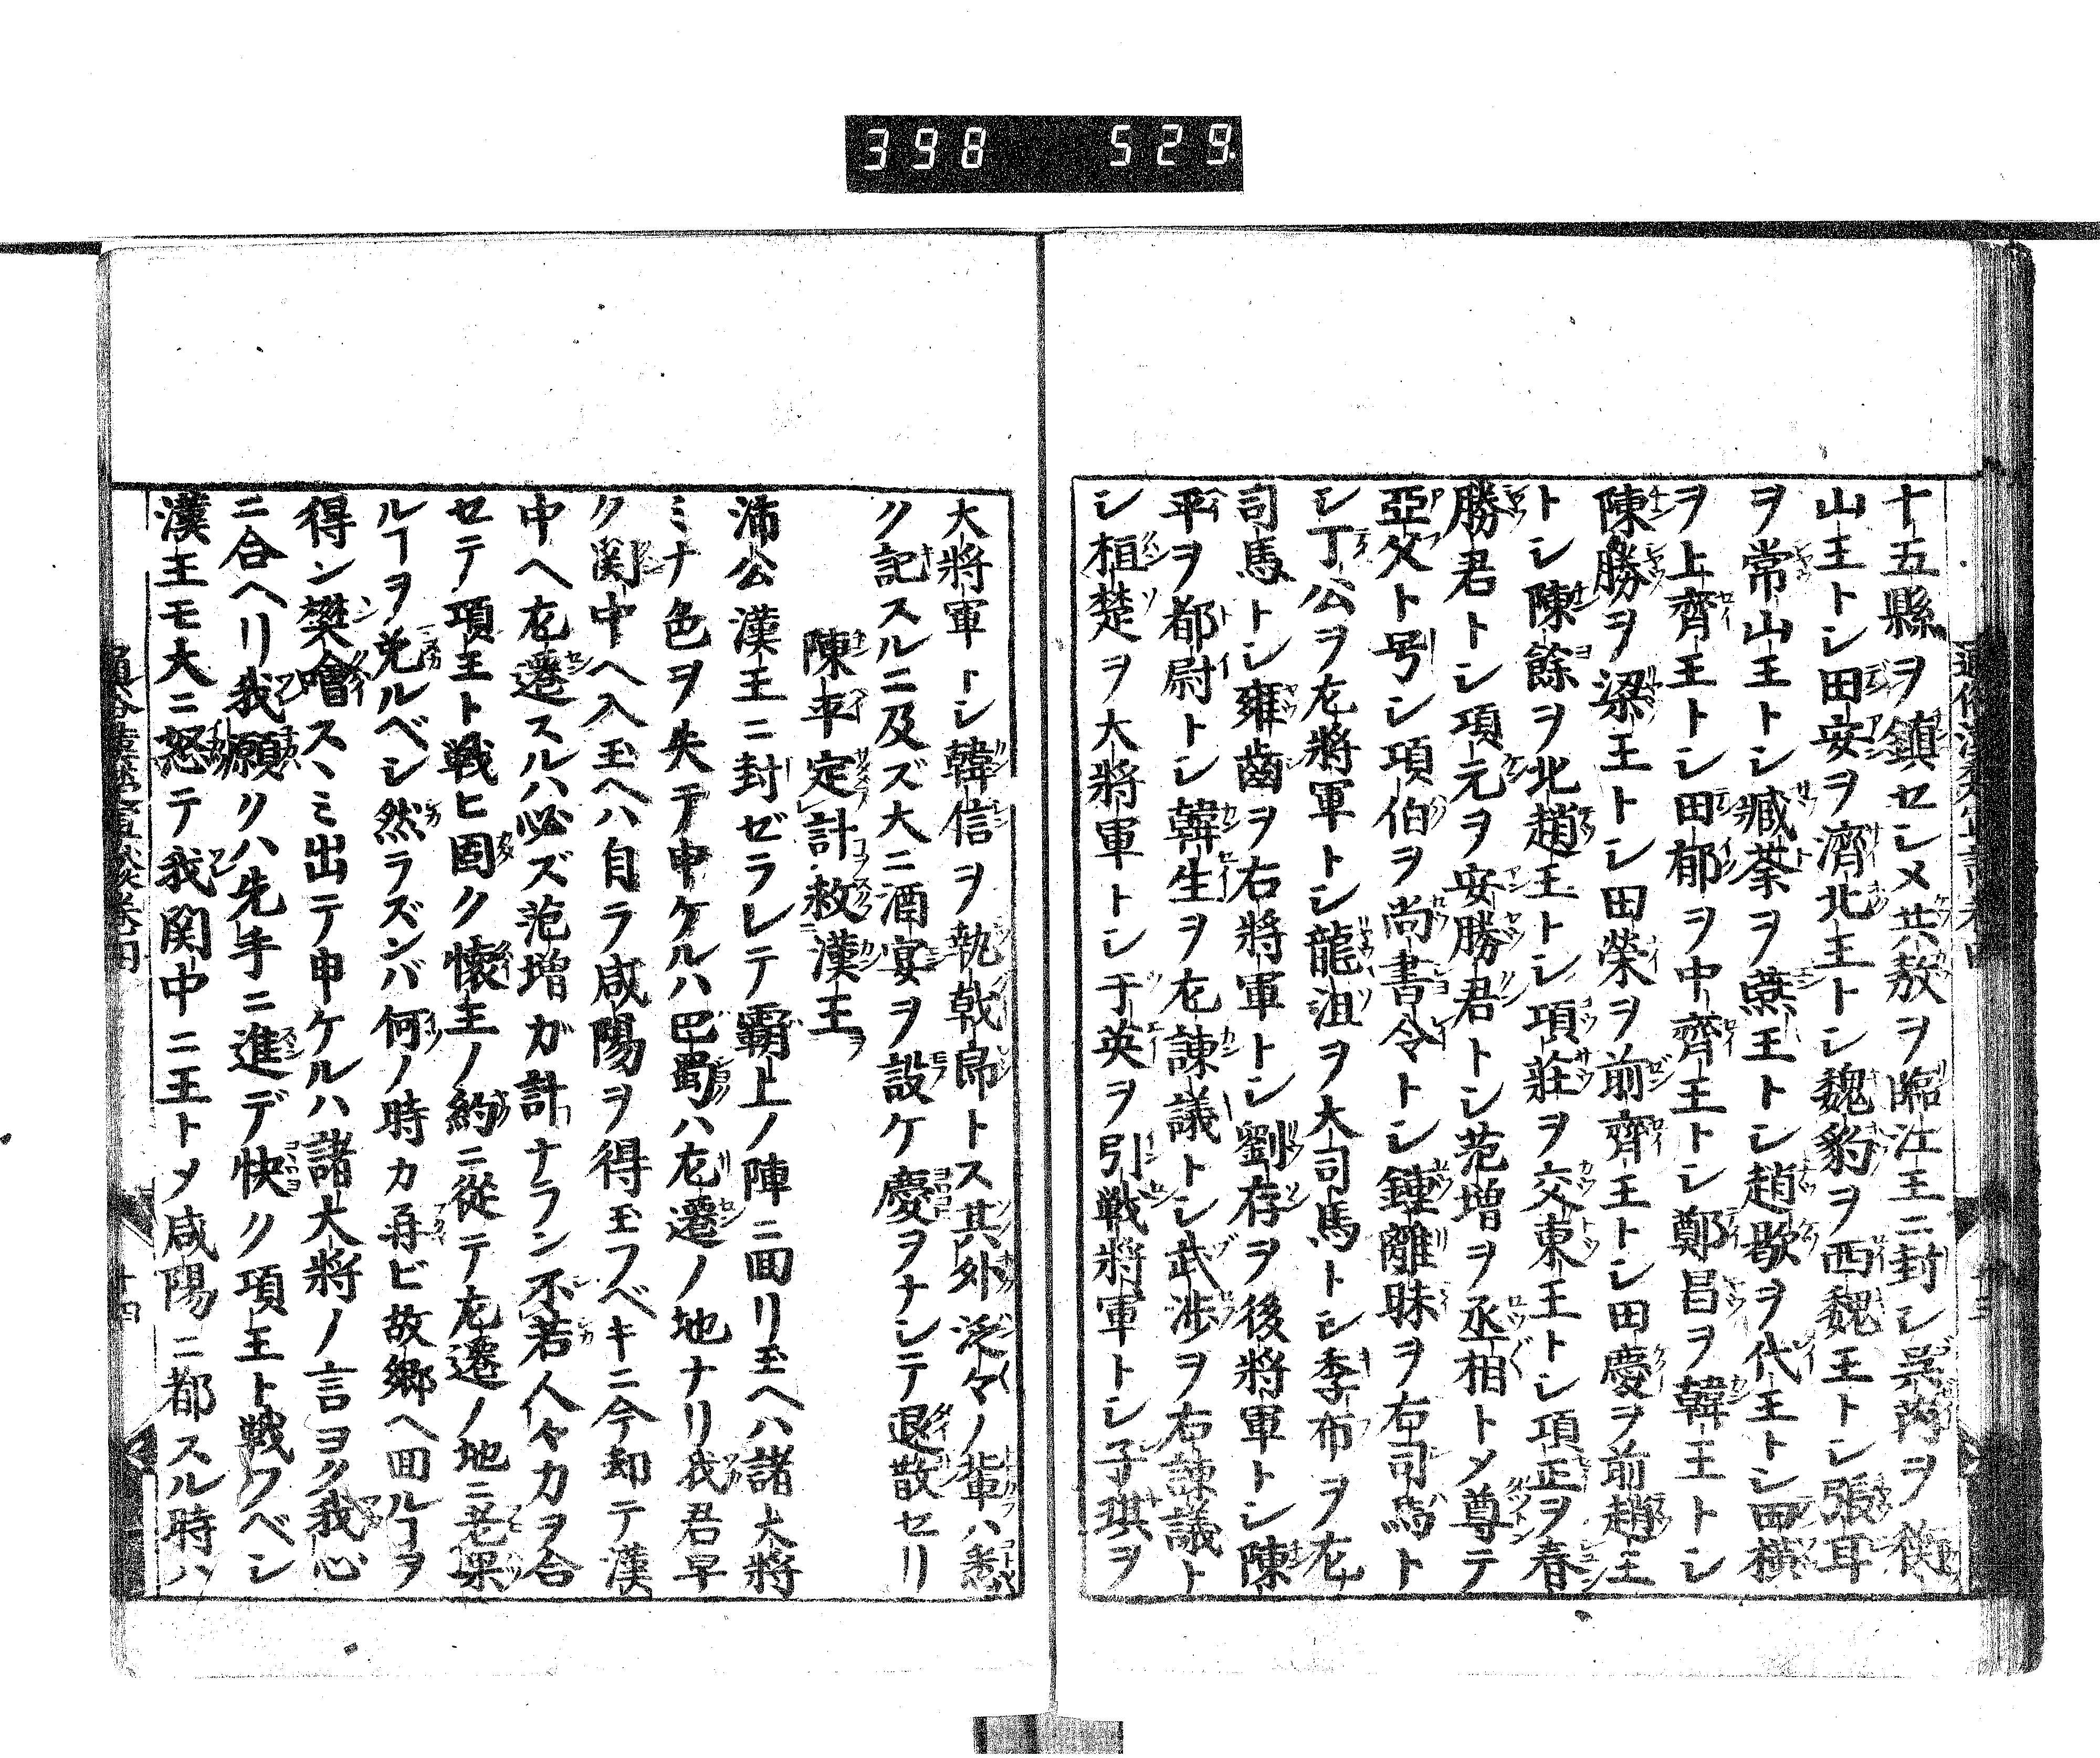 398 529
十五縣ヲ鎮セシメ共敖ヲ臨江王ニ封シ呉芮ヲ衡
山王トシ田安ヲ濟北王トシ魏豹ヲ西魏王トシ張耳
ヲ常山王トシ臧荼ヲ燕王トシ趙歇ヲ代王トシ田横
ヲ上齊王トシ田郁ヲ中齊王トシ鄭昌ヲ韓王トシ
陳勝ヲ梁王トシ田榮ヲ前齊王トシ田慶ヲ前趙王
トシ陳餘ヲ北趙王トシ項莊ヲ交東王トシ項正ヲ春
勝君トシ項元ヲ安勝君トシ范増ヲ丞相トメ尊テ
亞父ト号シ項伯ヲ尚書令トシ鍾離昧ヲ右司馬ト
シ丁公ヲ左將軍トシ龍沮ヲ大司馬トシ季布ヲ左
司馬トシ雍齒ヲ右將軍トシ劉存ヲ後將軍トシ陳
平ヲ都尉トシ韓生ヲ左諌議トシ武渉ヲ右諌議ト
シ桓楚ヲ大將軍トシ于英ヲ引戦將軍トシ子琪ヲ
大將軍トシ韓信ヲ執戟郎トス其外泛々ノ輩ハ悉
ク記スルニ及ズ大ニ酒宴ヲ設ケ慶ヲナシテ退散セリ
陳平定計救漢王
沛公漢王ニ封ゼラレテ覇上ノ陣ニ回リ玉ヘハ諸大將
ミナ色ヲ失テ申ケルハ巴蜀ハ左遷ノ地ナリ我君早
ク関中ヘ入玉ヘハ自ラ咸陽ヲ得玉フベキニ今却テ漢
中ヘ左遷スルハ必ズ范増ガ計ナラン不若人々力ヲ合
セテ項王ト戦ヒ固ク懐王ノ約ニ從テ左遷ノ地ニ老果
ルヿヲ免ルベシ然ラズンバ何ノ時カ再ビ故郷ヘ回ルヿヲ
得ン樊噲スヽミ出テ申ケルハ諸大將ノ言ヨク我心
ニ合ヘリ我願クハ先手ニ進デ快ク項王ト戦フベシ
漢王モ大ニ怒テ我関中ニ王トメ咸陽ニ都スル時ハ
十四